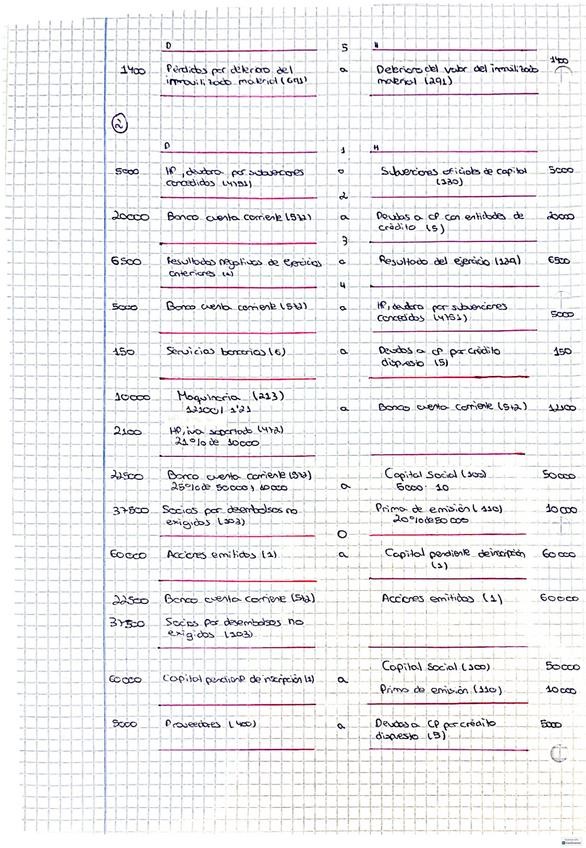 D 5 H
1400 Pérdidas por deterioro del a Deterioro del valor del inmovilizado 1400
inmovilizado material (691) material (291)
2
D 1 H
5000 HP, deudora por subvenciones a Subvenciones oficiales de capital 5000
concedidas (4751) (130)
2
20000 Banco cuenta corriente (572) a Deudas a CP con entidades de 20000
crédito (5)
3
6500 Resultados negativos de ejercicios a Resultado del ejercicio (129) 6500
anteriores (1)
4
5000 Banco cuenta corriente (572) a HP, deudora por subvenciones
concedidas (4751) 5000
150 Servicios bancarios (6) a Deudas a CP por crédito 150
dispuesto (5)
10000 Maquinaria (213)
12100/1'21 a Banco cuenta corriente (572) 12100
2100 HP, iva soportado (472)
21% de 10000
22500 Banco cuenta corriente (572) Capital Social (100) 50000
25% de 50000 y 10000 a 5000·10
37500 Socios por desembolsos no Prima de emisión (110) 10000
exigidos (103) 20% de 50000
0
60000 Acciones emitidas (1) a Capital pendiente de inscripción 60000
(1)
22500 Banco cuenta corriente (572) Acciones emitidas (1) 60000
37500 Socios por desembolsos no
exigidos (103)
Capital Social (100) 50000
60000 Capital pendiente de inscripción (1) a
Prima de emisión (110) 10000
5000 Proveedores (400) a Deudas a CP por crédito 5000
dispuesto (5)